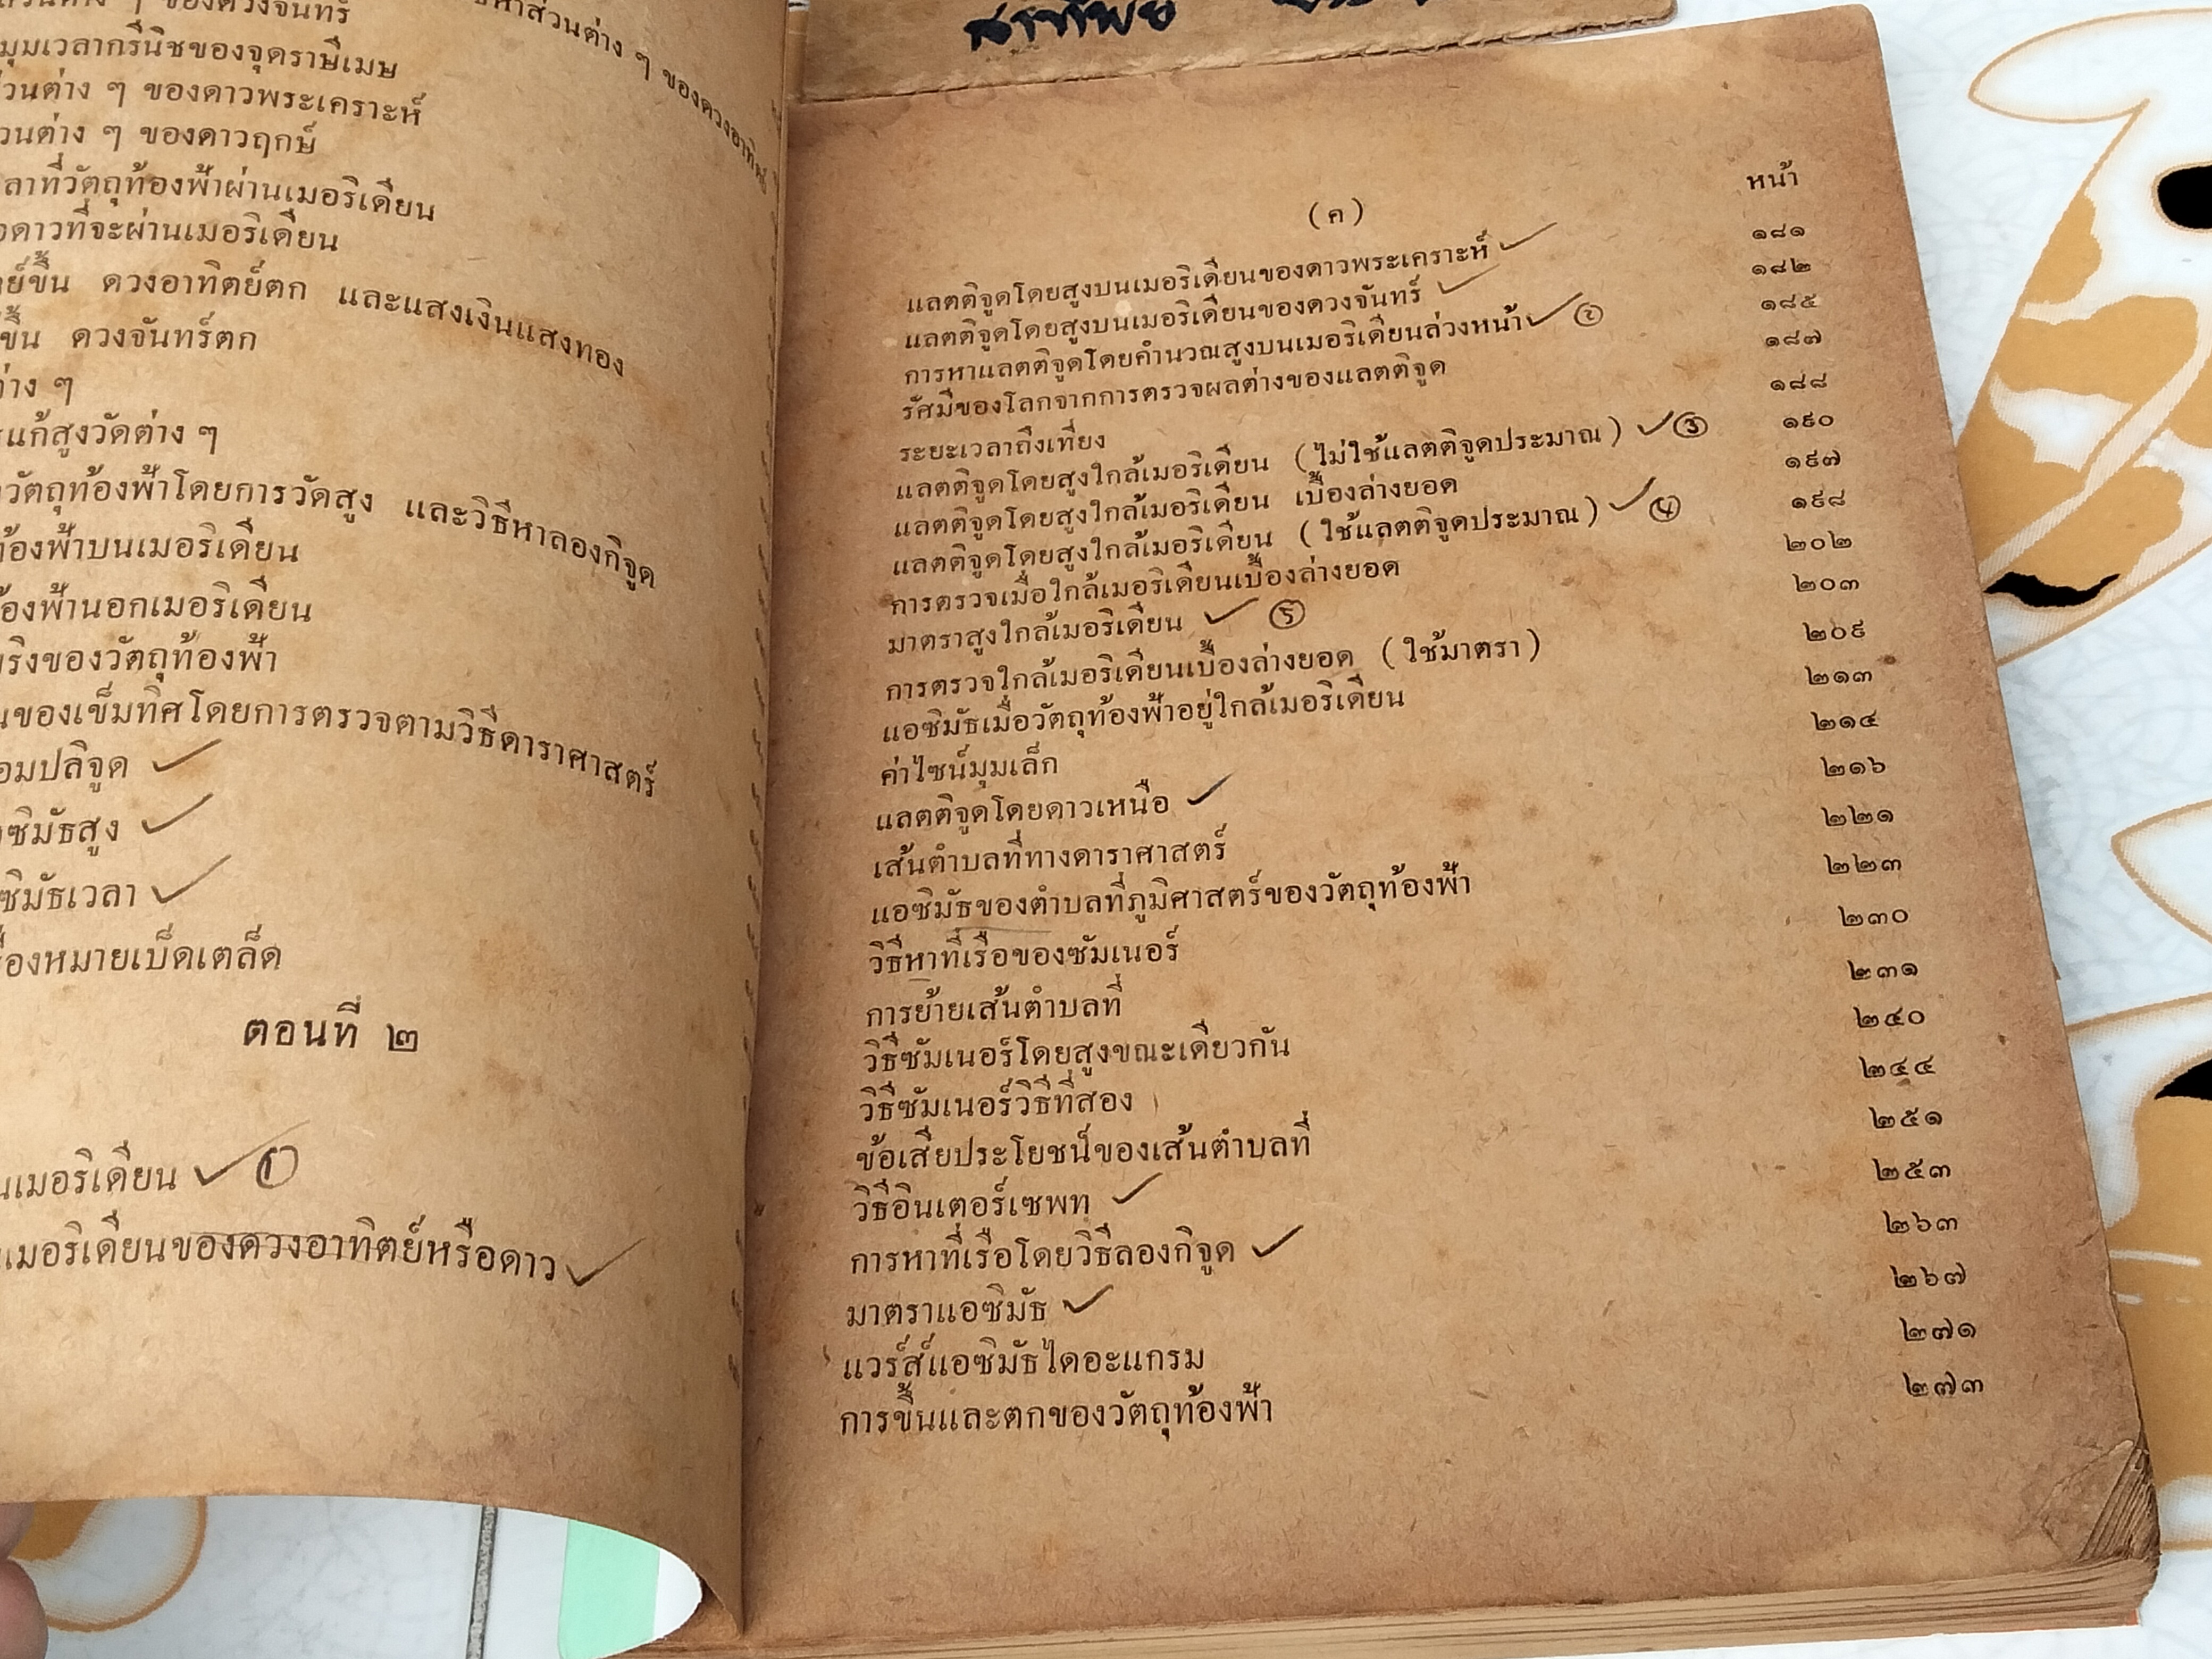 ของดวงจันทร์
ส่วนต่าง ๆ ของดวงอาทิตย์
มุมเวลากรีนิชของจุดราษีเมษ
ต่าง ๆ ของดาวพระเคราะห์
ต่าง ๆ ของดาวฤกษ์
ที่วัตถุท้องฟ้าผ่านเมอริเดียน
ดาวที่จะผ่านเมอริเดียน
ขึ้น ดวงอาทิตย์ตก และแสงเงินแสงทอง
ขึ้น ดวงจันทร์ตก
ต่าง ๆ
แก้สูงวัดต่าง ๆ
วัตถุท้องฟ้าโดยการวัดสูง และวิธีหาลองกิจูด
ท้องฟ้าบนเมอริเดียน
ท้องฟ้านอกเมอริเดียน
จริงของวัตถุท้องฟ้า
ของเข็มทิศโดยการตรวจตามวิธีดาราศาสตร์
สูง
เวลา
เบ็ดเตล็ด
ตอนที่ ๒
เมอริเดียน ๑
เมอริเดียนของดวงอาทิตย์หรือดาว
สาทิพย์
(ค)
หน้า
แลตติจูดโดยสูงบนเมอริเดียนของดาวพระเคราะห์ ๑๘๑
แลตติจูดโดยสูงบนเมอริเดียนของดวงจันทร์ ๑๘๒
การหาแลตติจูดโดยคำนวณสูงบนเมอริเดียนล่วงหน้า ๒ ๑๘๕
รัศมีของโลกจากการตรวจผลต่างของแลตติจูด ๑๘๗
ระยะเวลาถึงเที่ยง ๑๘๘
แลตติจูดโดยสูงใกล้เมอริเดียน (ไม่ใช้แลตติจูดประมาณ) ๓ ๑๙๐
แลตติจูดโดยสูงใกล้เมอริเดียน เบื้องล่างยอด ๑๙๗
แลตติจูดโดยสูงใกล้เมอริเดียน (ใช้แลตติจูดประมาณ) ๔ ๑๙๘
การตรวจเมื่อใกล้เมอริเดียนเบื้องล่างยอด ๒๐๒
มาตราสูงใกล้เมอริเดียน ๕ ๒๐๓
การตรวจใกล้เมอริเดียนเบื้องล่างยอด (ใช้มาตรา) ๒๐๙
แอซิมัธเมื่อวัตถุท้องฟ้าอยู่ใกล้เมอริเดียน ๒๑๓
ค่าไซน์มุมเล็ก ๒๑๔
แลตติจูดโดยดาวเหนือ ๒๑๖
เส้นตำบลที่ทางดาราศาสตร์ ๒๒๑
แอซิมัธของตำบลที่ภูมิศาสตร์ของวัตถุท้องฟ้า ๒๒๓
วิธีหาที่เรือของซัมเนอร์ ๒๓๐
การย้ายเส้นตำบลที่ ๒๓๑
วิธีซัมเนอร์โดยสูงขณะเดียวกัน ๒๔๐
วิธีซัมเนอร์วิธีที่สอง ๒๔๔
ข้อเสียประโยชน์ของเส้นตำบลที่ ๒๕๑
วิธีอินเตอร์เซพท ๒๕๓
การหาที่เรือโดยวิธีลองกิจูด ๒๖๓
มาตราแอซิมัธ ๒๖๗
แวร์ส์แอซิมัธไดอะแกรม ๒๗๑
การขึ้นและตกของวัตถุท้องฟ้า ๒๗๓